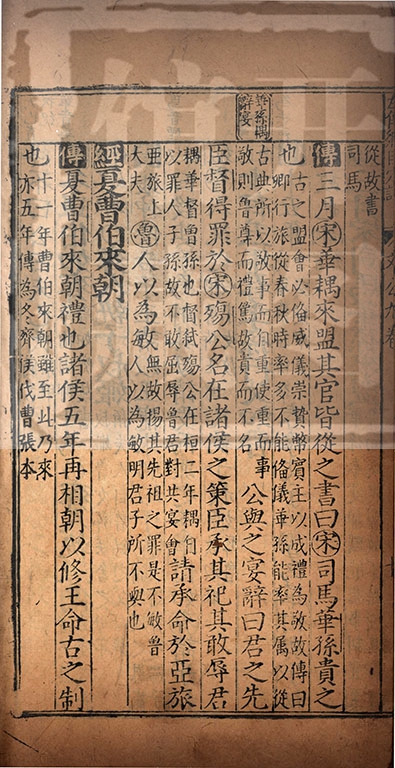 華孫耦
辭宴
文公九卷
從故書
司馬
傳三月宋華耦來盟其官皆從之書曰宋司馬華孫貴之
也
古之盟會必偹威儀崇贄幣賓主以成禮為敬故傳曰
卿行旅從春秋時率多不能偹儀華孫能率其属以從
古典所以敬事而自重使重而事
敬則魯尊而禮篤故貴而不名
公與之宴辭曰君之先
臣督得罪於宋殤公名在諸侯之策臣承其祀其敢辱君
耦華督曾孫也督弑殤公在桓二年耦自
以罪人子孫故不敢屈辱魯君對共宴會
請承命於亞旅
亜旅上
大夫
魯人以為敏
無故揚其先祖之罪是不敏魯
人以為敏明君子所不與也
經夏曹伯來朝
傳夏曹伯來朝禮也諸侯五年再相朝以修王命古之制
也
十一年曹伯來朝雖至此乃來
亦五年傳為冬齊侯伐曹張本